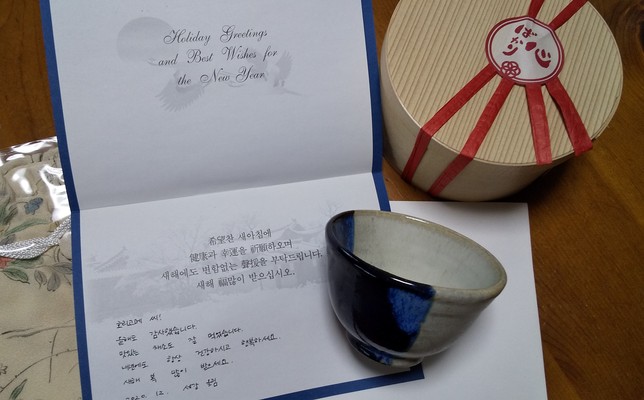 Holiday Greetings
and Best Wishes for
the New Year
心
ばかり
希望찬 새아침에
健康과 幸運을 祈願하오며
새해에도 변함없는 聲援을 부탁드립니다.
새해 福많이 받으십시오.
호리고메 씨!
올해도 감사했습니다.
맛있는 채소도 잘 먹었습니다.
내년에도 항상 건강하시고 행복하세요.
새해 복 많이 받으세요.
12. 올림